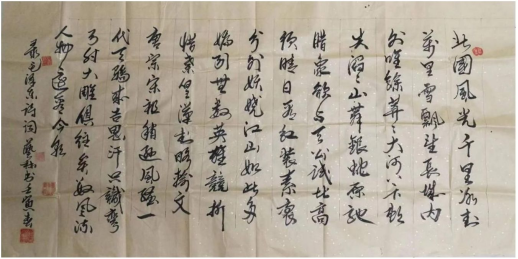 北國風光千里冰封
萬里雪飄望長城内
外唯餘莽莽大河上下頓
失滔滔山舞銀蛇原馳
蜡象欲与天公試比高
須晴日看紅裝素裹
分外妖嬈江山如此多
嬌引無數英雄競折
惜秦皇漢武略輸文
唐宗宋祖稍遜風騷一
代天驕成吉思汗只識彎
弓射大雕俱往矣數風流
人物還看今朝
录毛澤東詩詞 书壬寅春